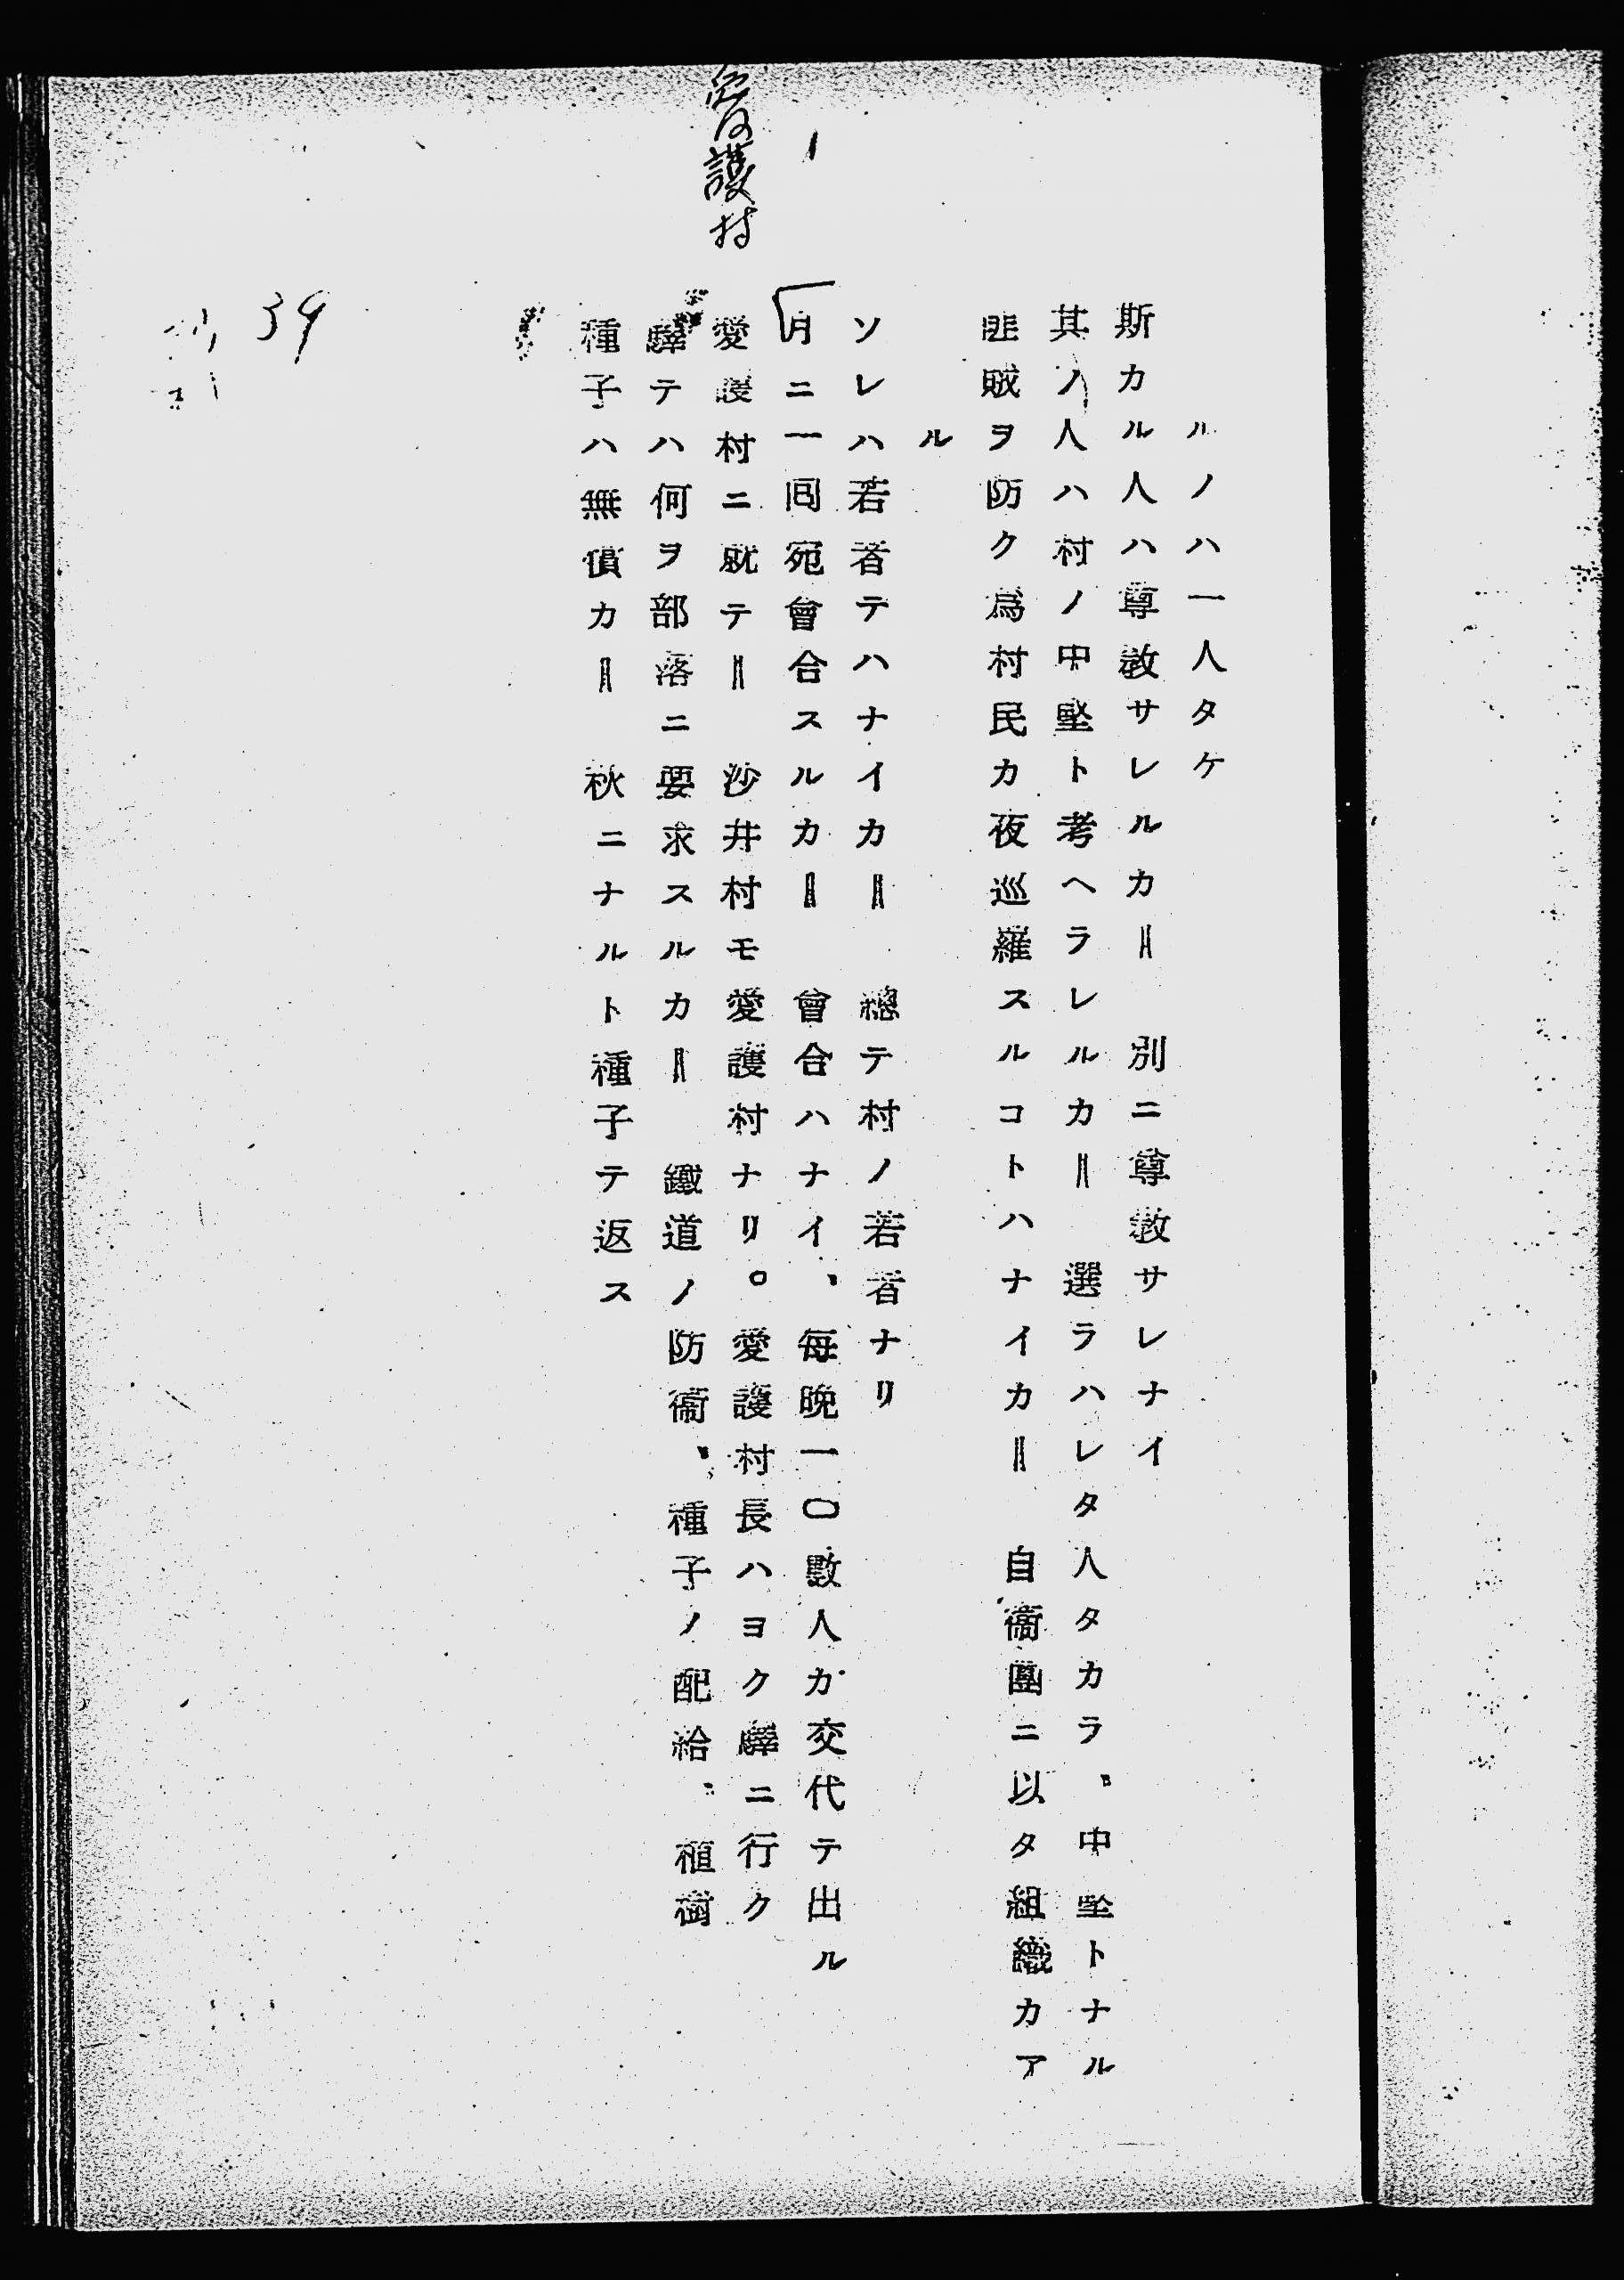 愛護村
ルノハ一人タケ
斯カル人ハ尊敬サレルカ＝　別ニ尊敬サレナイ
其ノ人ハ村ノ中堅ト考ヘラレルカ＝　選ラハレタ人タカラ、中堅トナル
匪賊ヲ防ク爲村民カ夜巡羅スルコトハナイカ＝　自衞團ニ以タ組織カア
ル
ソレハ若者テハナイカ＝　總テ村ノ若者ナリ
月ニ一囘宛會合スルカ＝　會合ハナイ、毎晩一〇數人カ交代テ出ル
愛護村ニ就テ＝　沙井村モ愛護村ナリ。愛護村長ハヨク驛ニ行ク
驛テハ何ヲ部落ニ要求スルカ＝　鐵道ノ防衞、種子ノ配給、植樹
種子ハ無償カ＝　秋ニナルト種子テ返ス
39